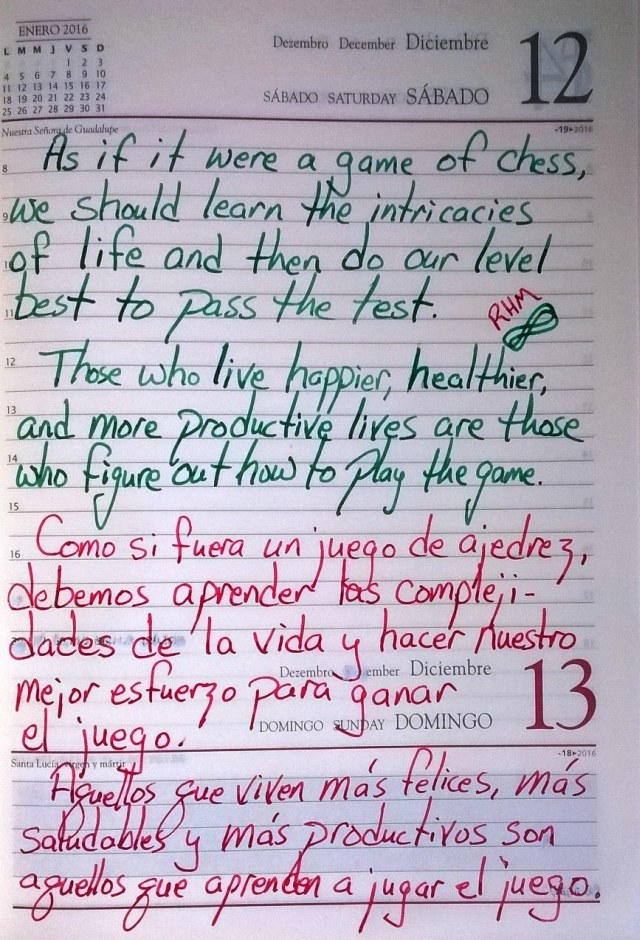 ENERO 2016
L M M J V S D
1 2 3
4 5 6 7 8 9 10
11 12 13 14 15 16 17
18 19 20 21 22 23 24
25 26 27 28 29 30 31
Dezembro December Diciembre 12
SÁBADO SATURDAY SÁBADO
Nuestra Señora de Guadalupe -19▸2016
8 As if it were a game of chess,
9 we should learn the intricacies
of life and then do our level
11 best to pass the test.
RHM
12 Those who live happier, healthier,
13 and more productive lives are those
14 who figure out how to play the game.
15
16 Como si fuera un juego de ajedrez,
debemos aprender las compleji-
dades de la vida y hacer nuestro
Dezembro ember Diciembre 13
mejor esfuerzo para ganar
DOMINGO SUNDAY DOMINGO
el juego.
Santa Lucía, virgen y mártir -18▸2016
Aquellos que viven más felices, más
saludables y más productivos son
aquellos que aprenden a jugar el juego.